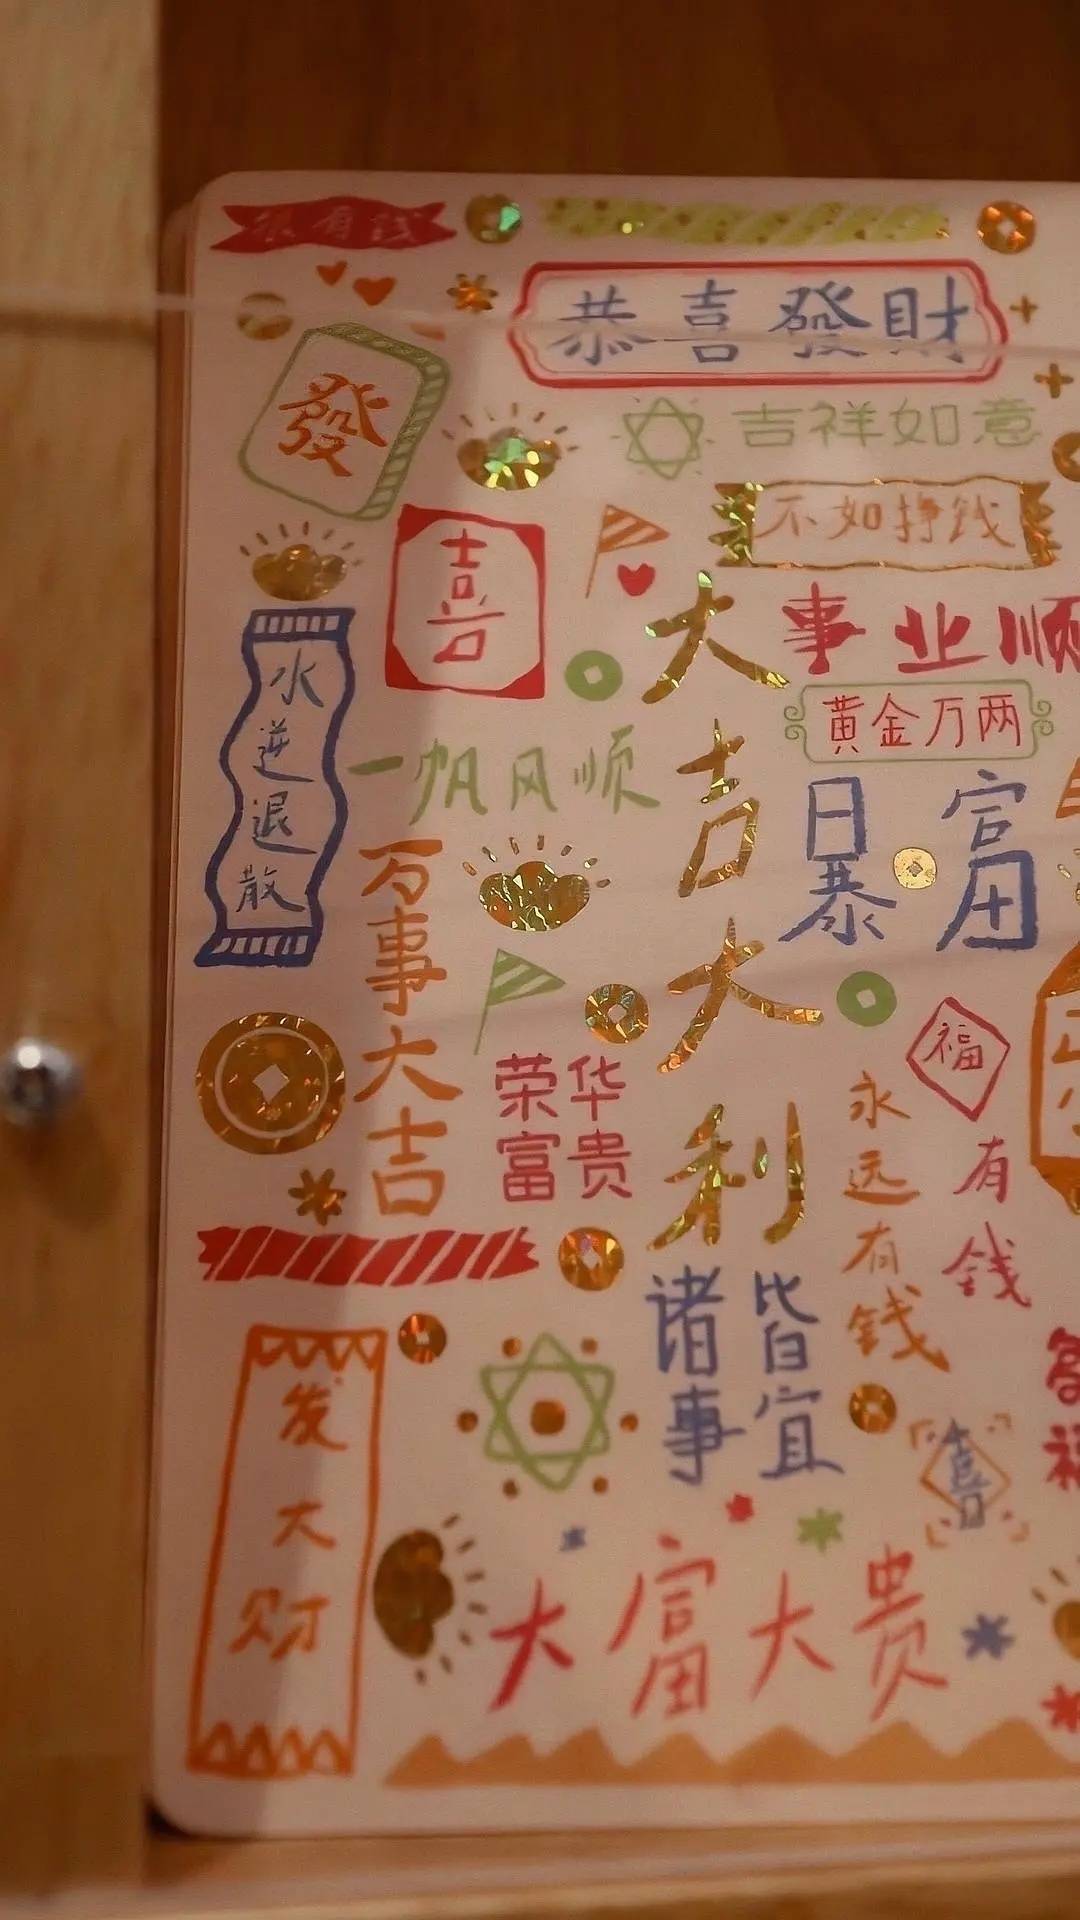 很有钱
恭喜發財
發
吉祥如意
不如挣钱
喜
大吉大利
事业顺
黄金万两
水逆退散
一帆风顺
日暴
富
万事大吉
福
荣华
富贵
永远有钱
有钱
诸事
皆宜
喜
发大财
大富大贵